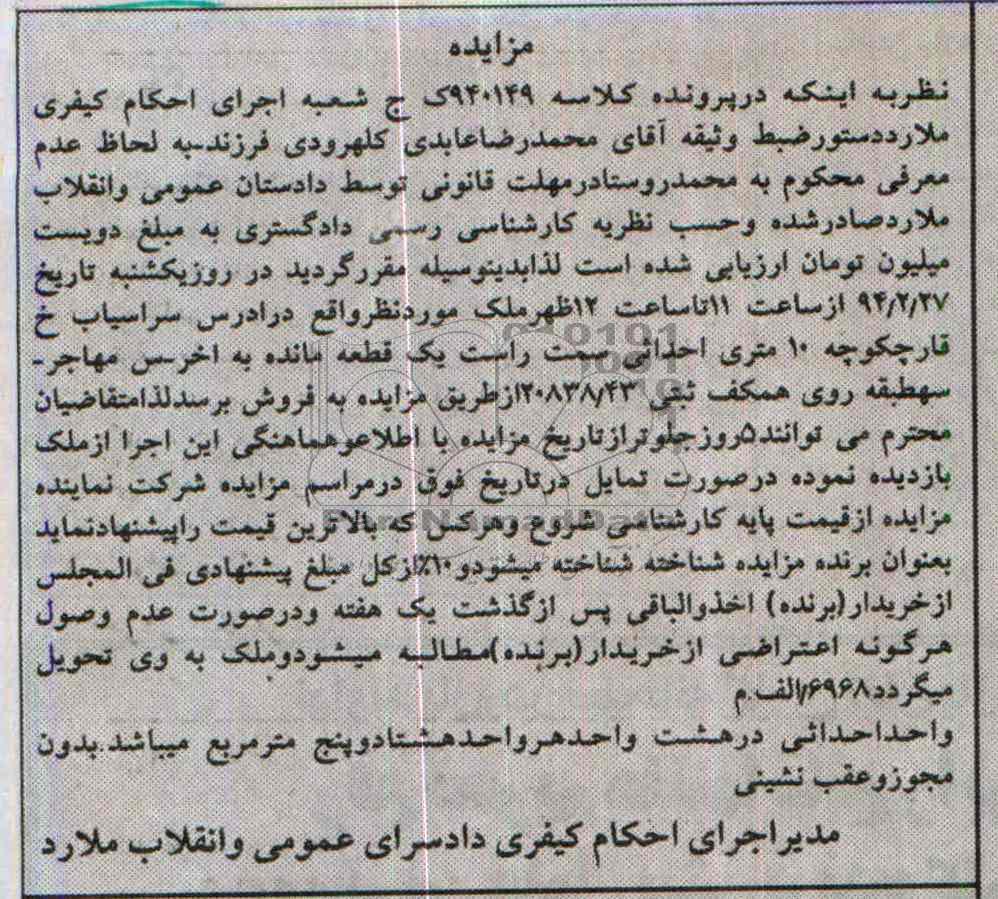 مزایده
نظربه اینکه درپرونده کلاسه ۹۴۰۱۴۹ک ج شعبه اجرای احکام کیفری
ملارددستورضبط وثیقه آقای محمدرضاعابدی کلهرودی فرزند-به لحاظ عدم
معرفی محکوم به محمدروستادرمهلت قانونی توسط دادستان عمومی وانقلاب
ملاردصادرشده وحسب نظریه کارشناسی رسمی دادگستری به مبلغ دویست
میلیون تومان ارزیابی شده است لذابدینوسیله مقررگردید در روزیکشنبه تاریخ
۹۴/۲/۲۷ ازساعت ۱۱تاساعت ۱۲ظهرملک موردنظرواقع درادرس سراسیاب خ
قارچکوچه ۱۰ متری احداثی سمت راست یک قطعه مانده به اخرس مهاجر-
سهطبقه روی همکف ثبتی ۲۰۸۳۸/۴۳ازطریق مزایده به فروش برسدلذامتقاضیان
محترم می توانند۵روزجلوترازتاریخ مزایده با اطلاعوهماهنگی این اجرا ازملک
بازدیده نموده درصورت تمایل درتاریخ فوق درمراسم مزایده شرکت نماینده
مزایده ازقیمت پایه کارشناسی شروع وهرکس که بالاترین قیمت راپیشنهادنماید
بعنوان برنده مزایده شناخته شناخته میشودو۱۰٪ازکل مبلغ پیشنهادی فی المجلس
ازخریدار(برنده) اخذوالباقی پس ازگذشت یک هفته ودرصورت عدم وصول
هرگونه اعتراضی ازخریدار(برنده)مطالبه میشودوملک به وی تحویل
میگردد۱/۶۹۶۸الف.م
واحداحداثی درهشت واحدهرواحدهشتادوپنج مترمربع میباشد.بدون
مجوزوعقب نشینی
مدیراجرای احکام کیفری دادسرای عمومی وانقلاب ملارد